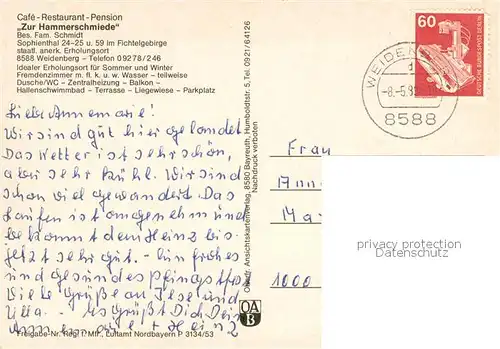 Café - Restaurant - Pension
„Zur Hammerschmiede"
Bes. Fam. Schmidt
Sophienthal 24-25 u. 59 im Fichtelgebirge
staatl. anerk. Erholungsort
8588 Weidenberg - Telefon 09278/246
Idealer Erholungsort für Sommer und Winter
Fremdenzimmer m. fl. k. u. w. Wasser - teilweise
Dusche/WC - Zentralheizung - Balkon -
Hallenschwimmbad - Terrasse - Liegewiese - Parkplatz
Liebe Annemarie!
Wir sind gut hier gelandet.
Das Wetter ist sehr schön,
aber sehr kühl. Wir sind
schon viel gewandert. Das
Laufen ist angenehm und
bekommt dem Heinz bis-
jetzt sehr gut. - Ein frohes
und gesundes Pfingstfest.
Viele Grüße an Ilse und
Ulla. - Es grüßt Dich Dein
Heinz
Freigabe-Nr. Reg. f. Mfr., Luftamt Nordbayern P 3134/53
Oberfr. Ansichtskartenverlag, 8580 Bayreuth, Humboldtstr. 5, Tel. 0921/64126
Nachdruck verboten
OA
B
60
DEUTSCHE BUNDESPOST BERLIN
WEIDEN
-8.-5.
8588
Frau
Anne
Ma
1000
privacy protection
Datenschutz